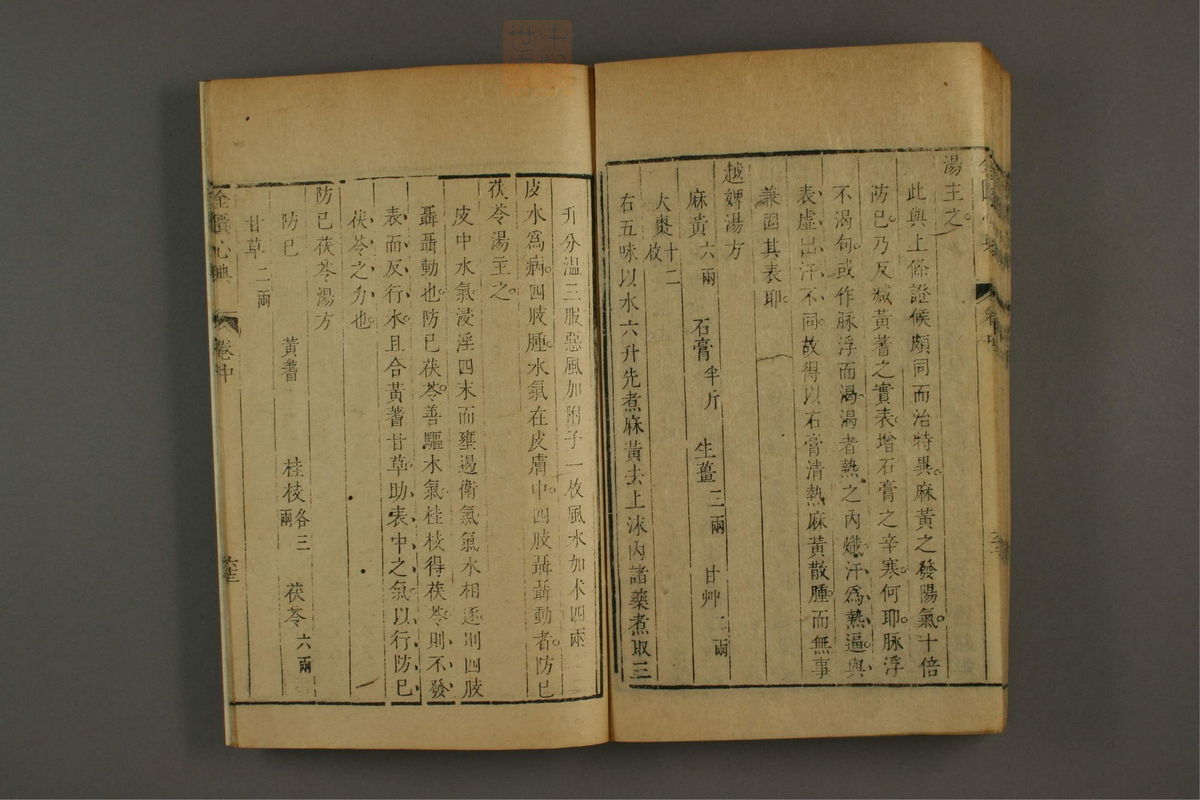 湯主之
此與上條證候頗同而治特異麻黃之發陽氣十倍
防已乃反減黃蓍之實表增石膏之辛寒何耶脉浮
不渴句或作脉浮而渴渴者熱之內熾汗爲熱逼與
表虛出汗不同故得以石膏清熱麻黃散腫而無事
兼固其表耶
越婢湯方
麻黃六兩 石膏半斤 生薑三兩 甘艸二兩
大棗十二枚
右五味以水六升先煮麻黃去上沫內諸藥煮取三
升分温三服惡風加附子一枚風水加术四兩
皮水爲病四肢腫水氣在皮膚中四肢聶聶動者防已
茯苓湯主之
皮中水氣浸淫四末而壅遏衛氣氣水相逐則四肢
聶聶動也防已茯苓善驅水氣桂枝得茯苓則不發
表而反行水且合黃蓍甘草助表中之氣以行防已
茯苓之力也
防已茯苓湯方
防已 黃耆 桂枝各三兩 茯苓六兩
甘草二兩
金匱心典 卷中